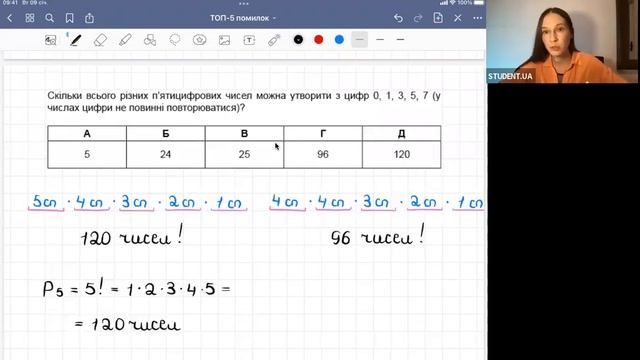 09:41 Вт 09 січ.
ТОП-5 помилок
STUDENT.UA
Скільки всього різних п'ятицифрових чисел можна утворити з цифр 0, 1, 3, 5, 7 (у
числах цифри не повинні повторюватися)?
А Б В Г Д
5 24 25 96 120
5сп · 4сп · 3сп · 2сп · 1сп
4сп · 4сп · 3сп · 2сп · 1сп
120 чисел!
96 чисел!
P₅ = 5! = 1·2·3·4·5 =
= 120 чисел